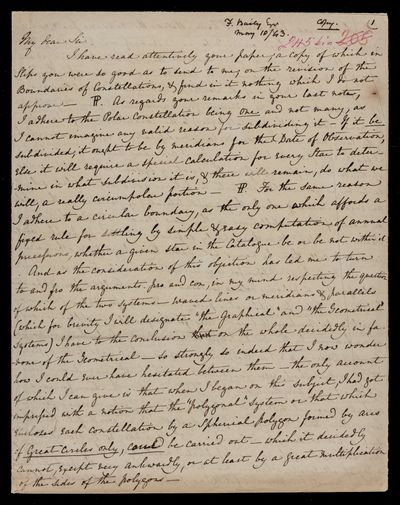 F. Baily Esq
Copy.
(1
May 10/43.
My dear Sir
I have read attentively your paper, a copy of which in
Slips you were so good as to send to me, on the revision of the
Boundaries of Constellations, & find in it nothing which I do not
approve — ¶. As regards your remarks in your last note,
I adhere to the Polar Constellation being one and not many, as
I cannot imagine any valid reason for subdividing it — If it be
subdivided, it ought to be by meridians for the Date of Observation,
else it will require a special calculation for every Star to deter-
-mine in what subdivision it is, & there will remain, do what we
will, a really circumpolar portion — ¶. For the same reason
I adhere to a circular boundary, as the only one which affords a
fixed rule for settling by simple & easy computation of annual
precessions, whether a given star in the Catalogue be or be not within it
And as the consideration of this objection has led me to turn
to and fro the arguments pro and con, in my mind respecting the question
of which of the two systems — waved lines or meridians & parallels
(which for brevity I will designate "the Graphical" and "the Geometrical"
Systems) I have to the conclusion on the whole decidedly in fa-
-vour of the Geometrical — so strongly so indeed that I now wonder
how I could ever have hesitated between them — the only account
of which I can give is that when I began on this subject, I had got
impressed with a notion that the "polygonal" System or that which
encloses each Constellation by a Spherical polygon formed by arcs
of Great Circles only, could be carried out — which it decidedly
cannot, except very awkwardly, or at least by a great multiplication
of the sides of the polygons —